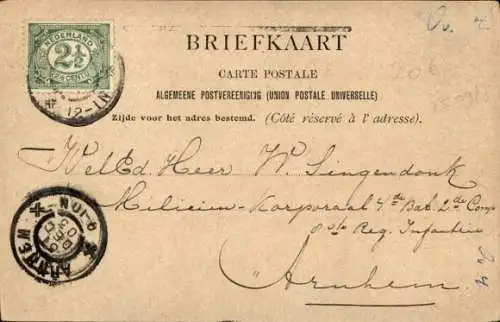 NEDERLAND
2½
CENT
12-1N
BRIEFKAART
CARTE POSTALE
ALGEMEENE POSTVEREENIGING (UNION POSTALE UNIVERSELLE)
Zijde voor het adres bestemd. (Côté réservé à l'adresse).
WelEd. Heer W. Singendonk
Milicien-Korporaal 4de Bat. 2de Comp
8ste Reg. Infanterie
Arnhem
ARNHEM